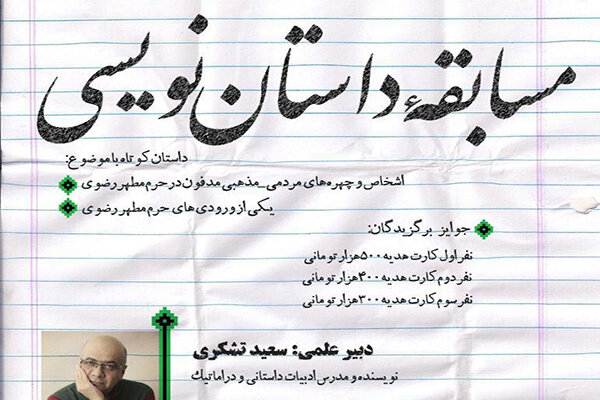 مسابقهٔ داستان نویسی
داستان کوتاه با موضوع:
اشخاص و چهره های مردمی_مذهبی مدفون در حرم مطهر رضوی
یکی از ورودی های حرم مطهر رضوی
جوایز برگزیدگان:
نفر اول کارت هدیه ۵۰۰ هزار تومانی
نفر دوم کارت هدیه ۴۰۰ هزار تومانی
نفر سوم کارت هدیه ۳۰۰ هزار تومانی
دبیر علمی: سعید تشکری
نویسنده و مدرس ادبیات داستانی و دراماتیک